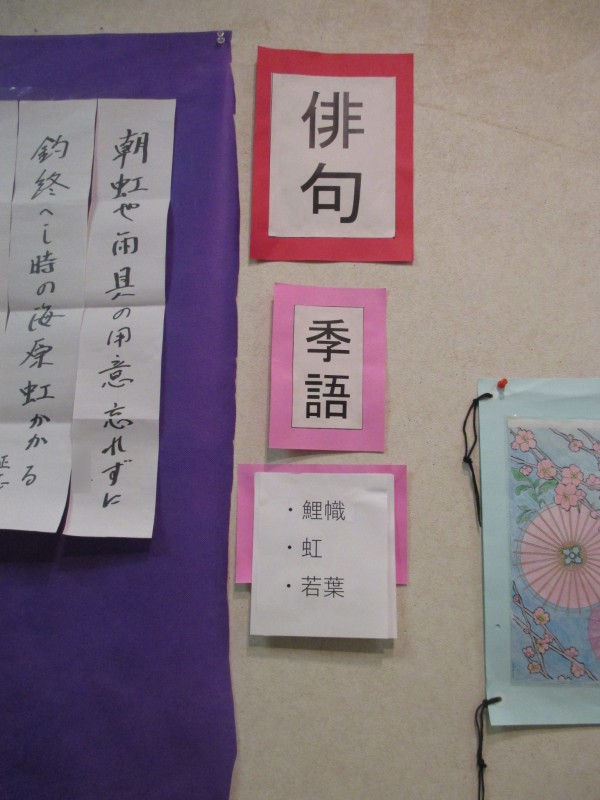 俳句
季語
・鯉幟
・虹
・若葉
朝虹や雨具への用意忘れずに
釣終へし時の海原虹かかる